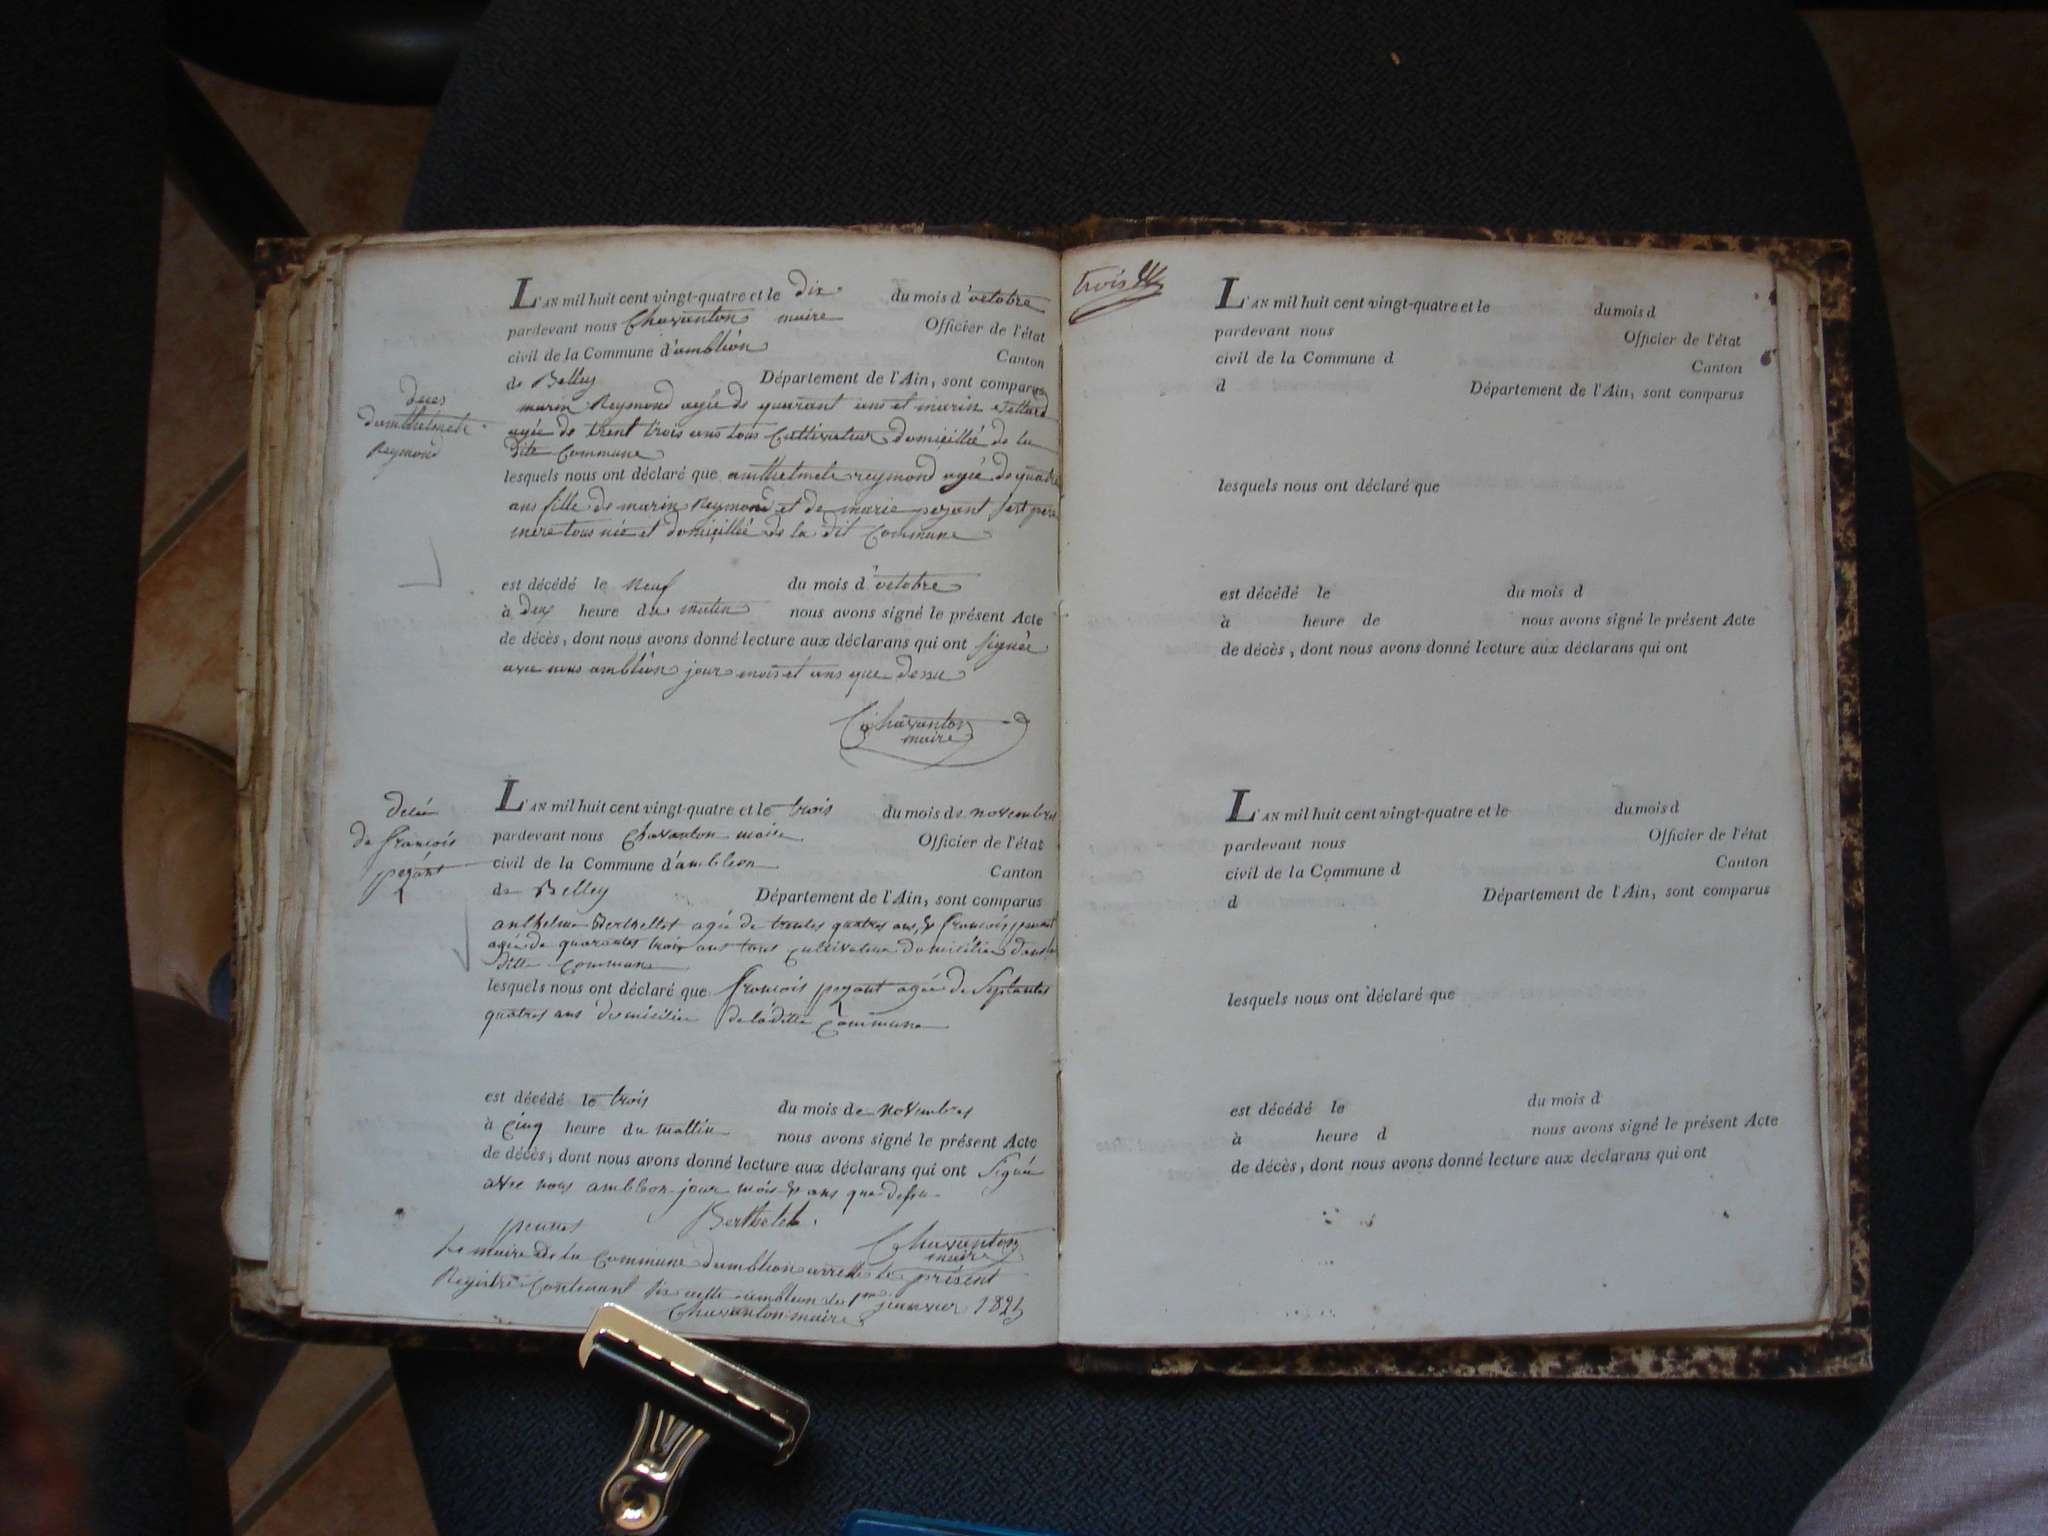 L'AN mil huit cent vingt-quatre et le dix du mois d'octobre
pardevant nous Chavanton maire Officier de l'état
civil de la Commune d'ambléon Canton
de Belley Département de l'Ain, sont comparus
marin Reymond agée de quarant ans et marin
agée de trent trois ans tous Cultivateur domicillié de la
dite Commune
lesquels nous ont déclaré que anthelmete reymond agée de quatre
ans fille de marin Reymond et de marie pezant
mere tous née et domicillié de la dit Commune
déces
danthelmete
Reymond
est décédé le neuf du mois d'octobre
à deux heure du matin nous avons signé le présent Acte
de décès, dont nous avons donné lecture aux déclarans qui ont signée
avec nous ambléon jour mois et ans que dessu
Chavanton
maire
L'AN mil huit cent vingt-quatre et le trois du mois de novembres
pardevant nous Chavanton maire Officier de l'état
civil de la Commune d'ambleon Canton
de Belley Département de l'Ain, sont comparus
anthelme Berthellet agée de trentes quatres ans, & françois
agée de quarantes trois ans tous cultivateur domicilièe dans la
ditte commune
lesquels nous ont déclaré que françois pezant agée de Septantes
quatres ans domicilièe de la ditte Commune
decèe
de françois
pezant
est décédé le trois du mois de novembres
à cinq heure du mattin nous avons signé le présent Acte
de décès, dont nous avons donné lecture aux déclarans qui ont Signée
avec nous ambleon jour mois & ans que dessu
Berthelet
Chavanton
maire
Le maire de la Commune dambleon arrette le présent
Registre Contenant ambleon le 1er janvier 1825
Chavanton maire
trois
L'AN mil huit cent vingt-quatre et le du mois d
pardevant nous Officier de l'état
civil de la Commune d Canton
d Département de l'Ain, sont comparus
lesquels nous ont déclaré que
est décédé le du mois d
à heure de nous avons signé le présent Acte
de décès, dont nous avons donné lecture aux déclarans qui ont
L'AN mil huit cent vingt-quatre et le du mois d
pardevant nous Officier de l'état
civil de la Commune d Canton
d Département de l'Ain, sont comparus
lesquels nous ont déclaré que
est décédé le du mois d
à heure d nous avons signé le présent Acte
de décès, dont nous avons donné lecture aux déclarans qui ont